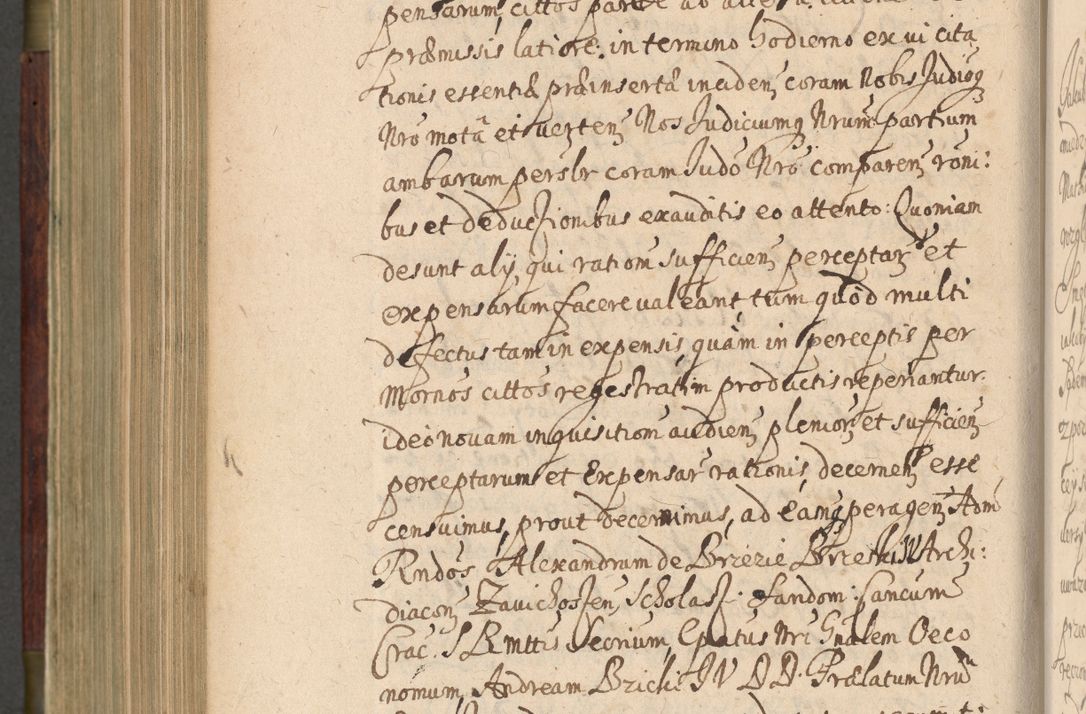 pensarum, cittos parte ab
præmissis latiore: in termino hodierno ex vi cita
tionis essentiã præinsertã in eadem coram Nobis Judiõq
Nrõ motã et verten Nos Judiciumq Nrum partium
ambarum perslr coram Judõ Nrõ comparen roni:
bus et deductionibus exauditis eo attento: Quoniam
desunt alij, qui ration sufficien perceptar et
expensarum facere valeant, tum quòd multi
defectus tam in expensis, quàm in perceptis per
Mornos cittos regestratim productis reperiantur.
ideò novam inquisitiom audien plenior et sufficien
perceptarum et Expensar rationis, decernen esse
censuimus, prout decernimus, ad eamq peragen Adm
Rndos Alexandrum de Brzezie Brzeski Archi:
diacon Zavichosten, Scholast: Sandom: Cancum
Crac. S R mttis Secrium, Epatus Nri Gnalem Oeco
nomum, Andream Bzicki IV D D. Prælatum Nrũ